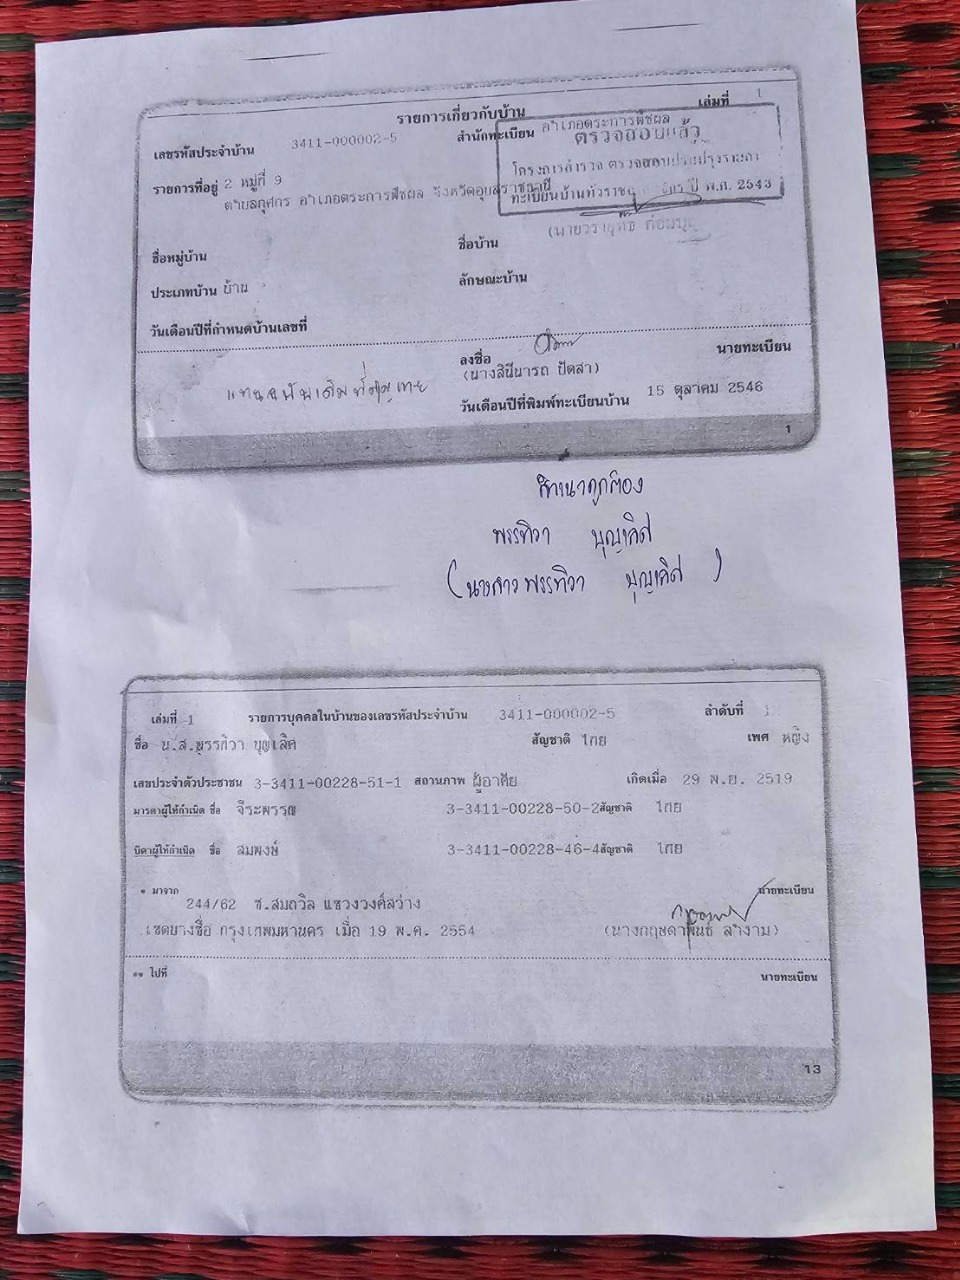 รายการเกี่ยวกับบ้าน เล่มที่ 1
เลขรหัสประจำบ้าน 3411-000002-5 สำนักทะเบียน อำเภอตระการพืชผล
ตรวจสอบแล้ว
รายการที่อยู่ 2 หมู่ที่ 9
โครงการสำรวจ ตรวจสอบปรับปรุงรายการ
ตำบลกุศกร อำเภอตระการพืชผล จังหวัดอุบลราชธานี
ทะเบียนบ้านทั่วราช ปี พ.ศ. 2543
ชื่อหมู่บ้าน ชื่อบ้าน
ประเภทบ้าน บ้าน ลักษณะบ้าน
วันเดือนปีที่กำหนดบ้านเลขที่
ลงชื่อ นายทะเบียน
(นางสินีนารถ ปัดสา)
แทนฉบับเดิมที่สูญหาย
วันเดือนปีที่พิมพ์ทะเบียนบ้าน 15 ตุลาคม 2546
1
สำเนาถูกต้อง
พรรทิวา บุญเลิศ
(นางสาวพรรทิวา บุญเลิศ)
เล่มที่ 1 รายการบุคคลในบ้านของเลขรหัสประจำบ้าน 3411-000002-5 ลำดับที่
ชื่อ น.ส.พรรทิวา บุญเลิศ สัญชาติ ไทย เพศ หญิง
เลขประจำตัวประชาชน 3-3411-00228-51-1 สถานภาพ ผู้อาศัย เกิดเมื่อ 29 พ.ย. 2519
มารดาผู้ให้กำเนิด ชื่อ จีระพรรณ 3-3411-00228-50-2 สัญชาติ ไทย
บิดาผู้ให้กำเนิด ชื่อ สมพงษ์ 3-3411-00228-46-4 สัญชาติ ไทย
* มาจาก นายทะเบียน
244/62 ซ.สมถวิล แขวงวงศ์สว่าง
เขตบางซื่อ กรุงเทพมหานคร เมื่อ 19 พ.ค. 2554 (นางกฤษดาพันธ์ ลำงาม)
** ไปที่ นายทะเบียน
13